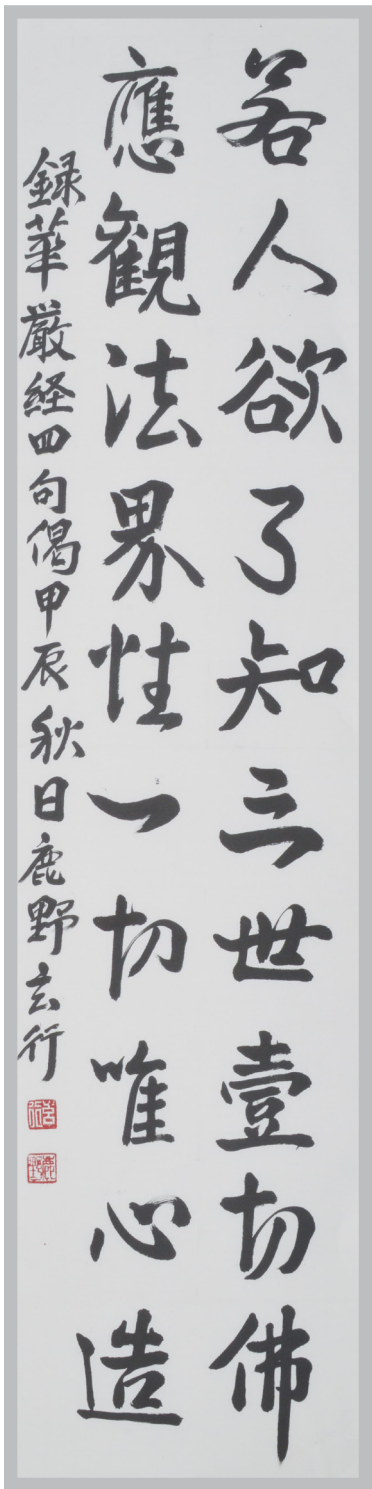 若人欲了知三世壹切佛
應観法界性一切唯心造
録華厳経四句偈甲辰秋日鹿野玄行